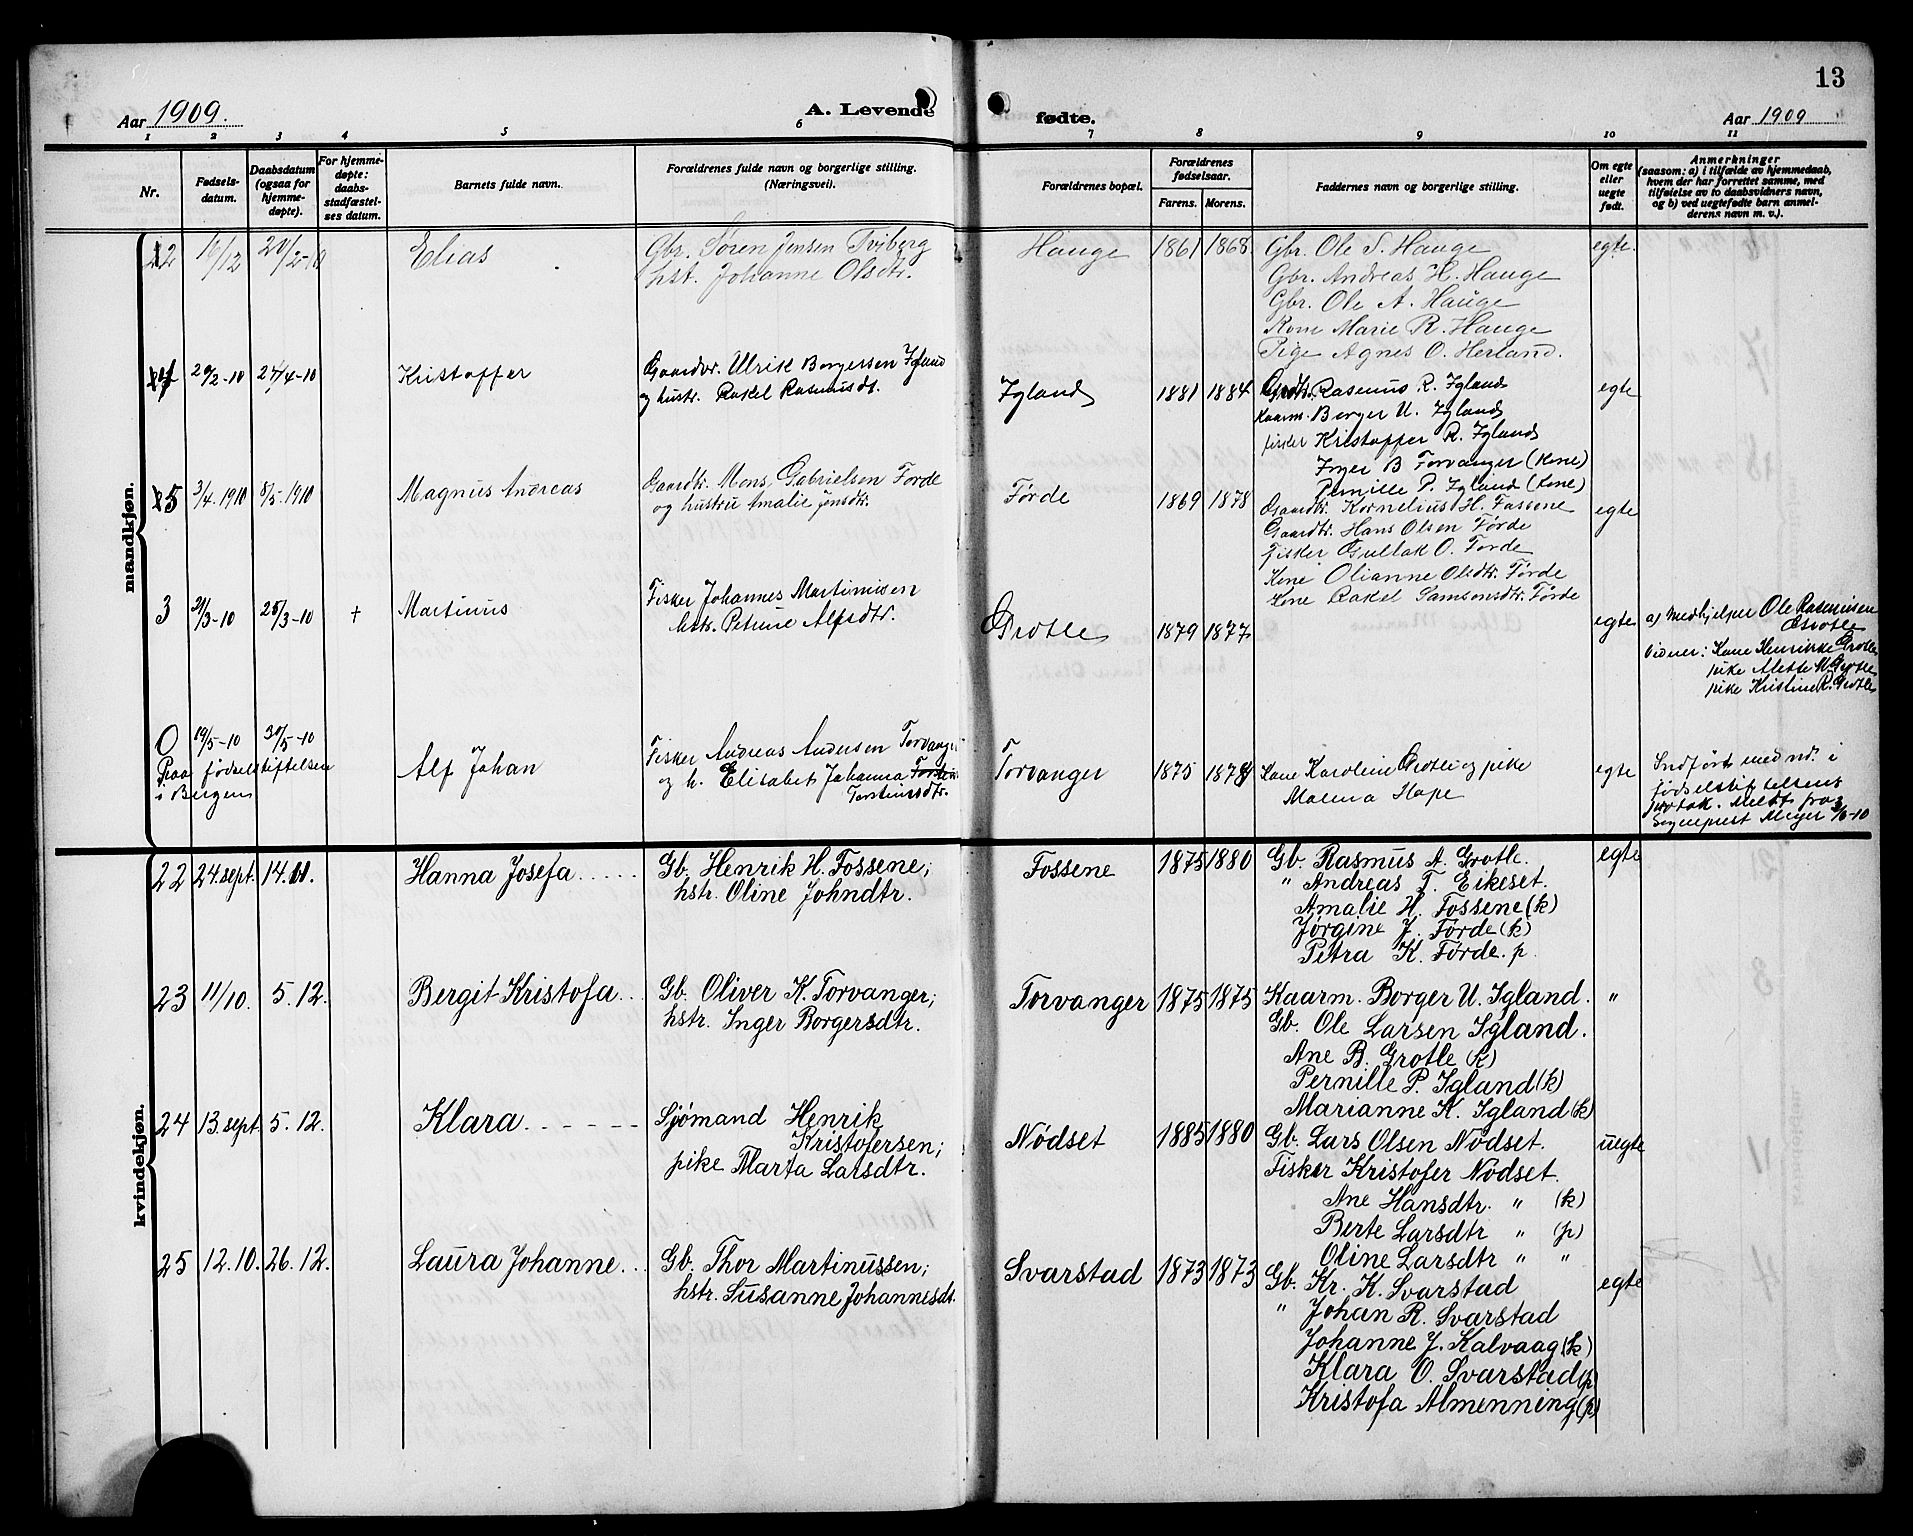 13
Aar 1909.
A. Levende fødte.
Aar 1909
1 2 3 4 5 6 7 8 9 10 11
Nr.
Fødsels-
datum.
Daabsdatum
(ogsaa for
hjemme-
døpte).
For hjemme-
døpte:
daabs-
stadfæstel-
ses datum.
Barnets fulde navn.
Forældrenes fulde navn og borgerlige stilling.
(Næringsvei).
Forældrenes bopæl.
Forældrenes
fødselsaar.
Farens. Morens.
Faddernes navn og borgerlige stilling.
Om egte
eller
uegte
født.
Anmerkninger
(saasom: a) i tilfælde av hjemmedaab,
hvem der har forrettet samme, med
tilføielse av to daabsvidners navn,
og b) ved uegtefødte barn anmel-
derens navn m. v.).
mandkjøn.
Elias
Gbr. Søren Jensen Tviberg
hst. Johanne Olsdtr.
Hauge 1861 1868
Gbr. Ole S. Hauge
Gbr. Andreas H. Hauge
Gbr. Ole A. Hauge
Kone Marie R. Hauge
Pige Agnes O. Herland.
egte
4 20/2-10 24/4-10
Kristoffer
Gaardbr. Ulrik Borgersen Igland
og hustr. Rakel Rasmusdt.
Igland 1881 1884
Grdbr. Rasmus R. Igland
Kaarm. Borger U. Igland
fisker Kristoffer R. Igland
Inger B Torvanger (kone)
Pernille P. Igland (kone)
egte
5 3/4 1910 8/5-1910
Magnus Andreas
Gaardbr. Mons Gabrielsen Førde
og hustru Amalie Jensdtr.
Førde 1869 1878
Gaardbr. Kornelius H. Fossene
Gaardbr. Hans Olsen Førde
Fisker Gullak O. Førde
Kone Olianne Olsdtr. Førde
Kone Rakel Samsonsdtr. Førde
egte
3 21/3-10 25/3-10 +
Martinus
Fisker Johannes Martinusen
hstr. Petrine Alfsdtr.
Grotle 1879 1877
egte
a) Medhjelper Ole Rasmusen
Grotle
Vidner: Kone Henrikke Grotle
pike Mette M. Grotle
pike Kristine R. Grotle
0 19/5-10 30/5-10
Paa fødselstiftelsen
i Bergen
Alf Johan
Fisker Andreas Andersen Torvanger
og h. Elisabet Johanna
Torstensdtr.
Torvanger 1875 1874
Kone Karoline Grotle og pike
Malena Hope
egte
Indført med nd. i
fødselstiftelsens
protok. Meldt fra
Sogneprest Meyer 3/6-10
kvindekjøn.
22 24. sept. 14. 11.
Hanna Josefa
Gb. Henrik H. Fossene;
hstr. Oline Johndtr.
Fossene 1875 1880
Gb. Rasmus A. Grotle.
" Andreas T. Eikeset.
Amalie H. Fossene (k)
Jørgine J. Førde (k)
Petra K. Førde. p.
egte
23 11/10. 5. 12.
Bergit Kristofa
Gb. Oliver K. Torvanger;
hstr. Inger Borgersdtr.
Torvanger 1875 1875
Kaarm. Borger U. Igland.
Gb. Ole Larsen Igland.
Ane B. Grotle (k)
Pernille P. Igland (k)
Marianne K. Igland (k)
"
24 13. sept. 5. 12.
Klara
Sjømand Henrik
Kristofersen;
pike Marta Larsdtr.
Nødset 1885 1880
Gb. Lars Olsen Nødset.
Fisker Kristofer Nødset.
Ane Hansdtr. " (k)
Berte Larsdtr " (p)
Oline Larsdtr " "
uegte
25 12. 10. 26. 12.
Laura Johanne
Gb. Thor Martinussen;
hstr. Susanne Johannesdt.
Svarstad 1873 1873
Gb. Kr. K. Svarstad
" Johan R. Svarstad
Johanne J. Kalvaag (k)
Klara O. Svarstad (p)
Kristofa Almenning (p)
egte